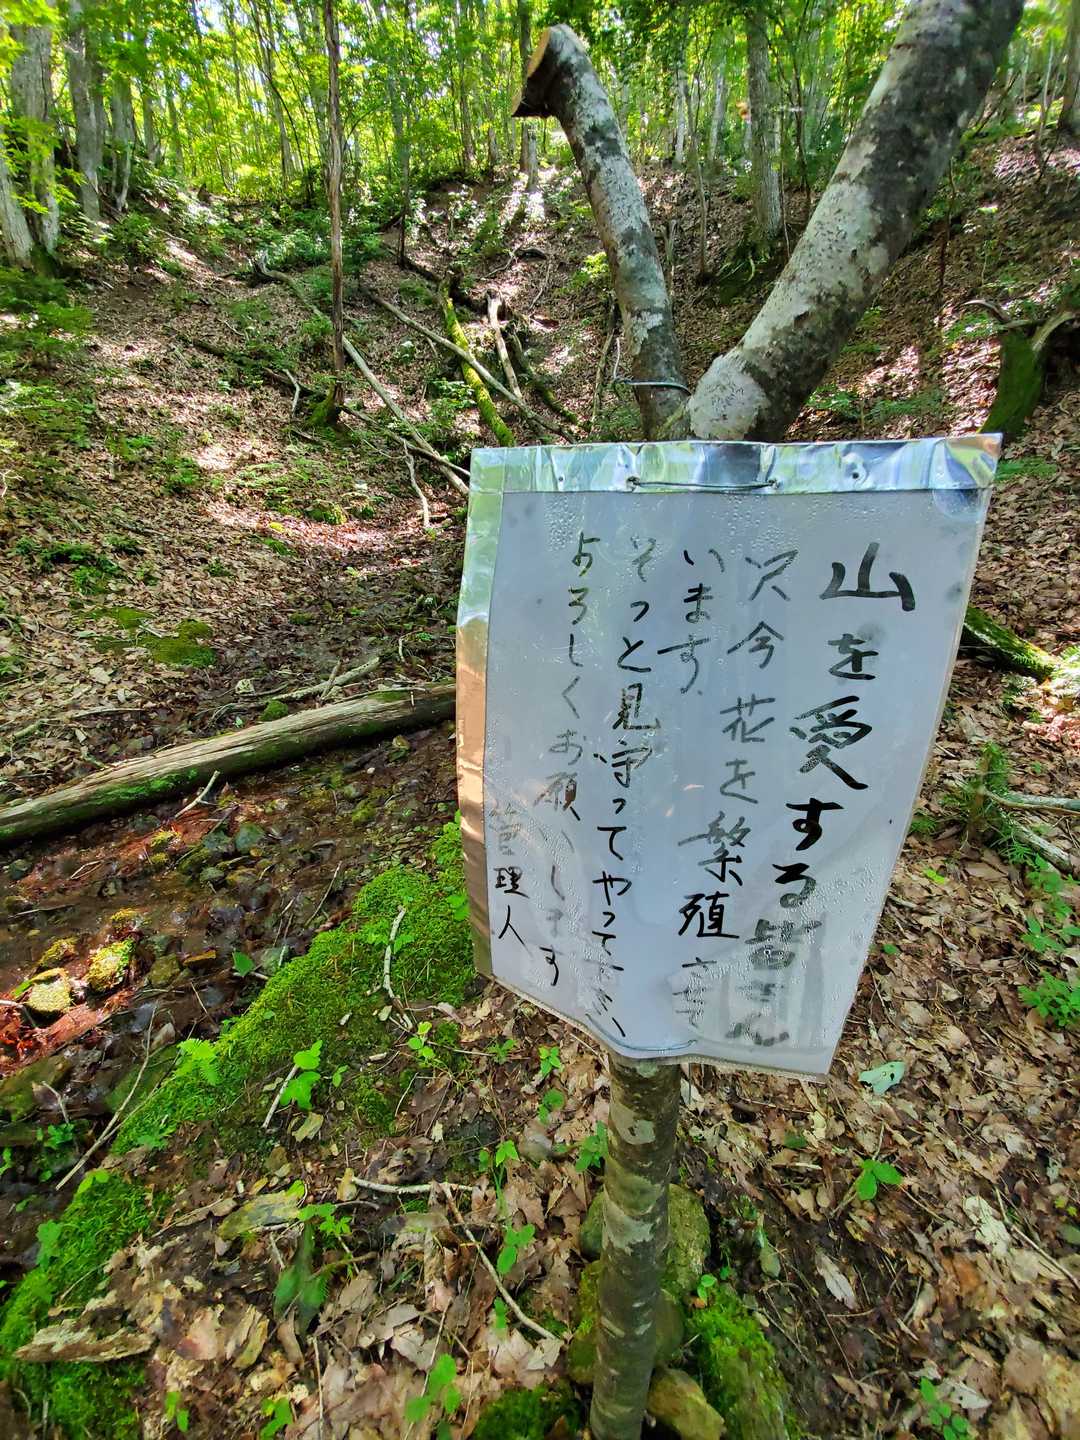 山を愛する皆さん
只今花を繁殖させて
います。
そっと見守ってやって下さい
よろしくお願いします
管理人